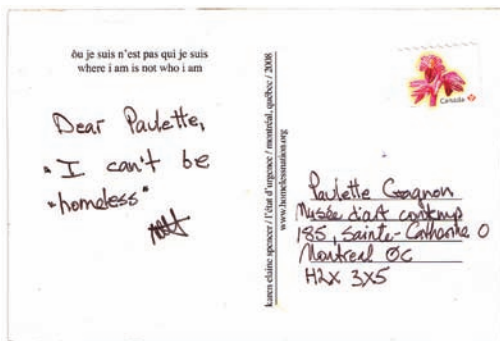 ôu je suis n'est pas qui je suis
where i am is not who i am
Dear Paulette,
"I can't be
"homeless"
karen elaine spencer / l'état d'urgence / montréal, québec / 2008
www.homelessnation.org
Canada
Paulette Gagnon
Musée d'art contemp
185, Sainte-Catherine O
Montreal QC
H2X 3X5